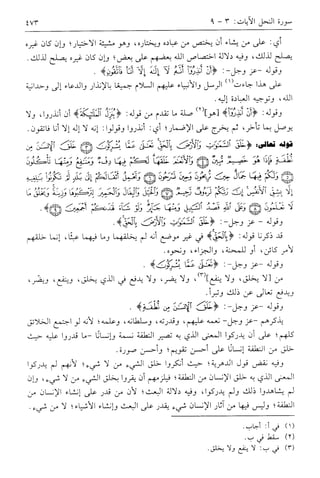 سورة النحل الآيات: ٣ - ٩
٤٧٣
أي: على من يشاء أن يختص من عباده ويختاره، وهو مشيئة الاختيار؛ وإن كان غيره
يصلح لذلك، وفيه دلالة اختصاص الله بعضهم على بعض؛ وإن كان غيره يصلح لذلك.
وقوله -عز وجل-: ﴿أَنْ أَنْذِرُوا أَنَّهُ لَا إِلَهَ إِلَّا أَنَا فَاتَّقُونِ﴾.
على هذا جاءت(١) الرسل والأنبياء عليهم السلام جميعًا بالإنذار والدعاء إلى وحدانية
الله، وتوجيه العبادة إليه.
وقوله: ﴿أَنْ أَنْذِرُوا﴾ [هو](٢) صلة ما تقدم من قوله: ﴿يُنَزِّلُ الْمَلَائِكَةَ﴾ أن أنذروا، ولا
يوصل بما تأخر، ثم يخرج على الإضمار؛ أي: أنذروا وقولوا: إنه لا إله إلا أنا فاتقون.
قوله تعالى: ﴿خَلَقَ السَّمَوَاتِ وَالْأَرْضَ بِالْحَقِّ تَعَالَى عَمَّا يُشْرِكُونَ خَلَقَ الْإِنْسَانَ مِنْ
نُطْفَةٍ فَإِذَا هُوَ خَصِيمٌ مُبِينٌ وَالْأَنْعَامَ خَلَقَهَا لَكُمْ فِيهَا دِفْءٌ وَمَنَافِعُ وَمِنْهَا تَأْكُلُونَ
وَلَكُمْ فِيهَا جَمَالٌ حِينَ تُرِيحُونَ وَحِينَ تَسْرَحُونَ وَتَحْمِلُ أَثْقَالَكُمْ إِلَى بَلَدٍ لَمْ تَكُونُوا بَالِغِيهِ
إِلَّا بِشِقِّ الْأَنْفُسِ إِنَّ رَبَّكُمْ لَرَءُوفٌ رَحِيمٌ وَالْخَيْلَ وَالْبِغَالَ وَالْحَمِيرَ لِتَرْكَبُوهَا وَزِينَةً وَيَخْلُقُ مَا
لَا تَعْلَمُونَ وَعَلَى اللَّهِ قَصْدُ السَّبِيلِ وَمِنْهَا جَائِرٌ وَلَوْ شَاءَ لَهَدَاكُمْ أَجْمَعِينَ﴾.
وقوله -عز وجل-: ﴿خَلَقَ السَّمَوَاتِ وَالْأَرْضَ بِالْحَقِّ﴾.
قد ذكرنا قوله: ﴿بِالْحَقِّ﴾ في غير موضع أنه لم يخلقهما وما فيهما عبثًا، إنما خلقهم
لأمر كائن، أو للمحنة، والجزاء، ونحوه.
وقوله -عز وجل-: ﴿تَعَالَى عَمَّا يُشْرِكُونَ﴾.
من [لا يخلق، ولا ينفع](٣)، ولا يضر، ولا يدفع في الذي يخلق، وينفع، ويضر،
ويدفع تعالى عن ذلك وتبرأ.
وقوله -عز وجل-: ﴿خَلَقَ الْإِنْسَانَ مِنْ نُطْفَةٍ﴾.
يذكرهم -عز وجل- نعمه عليهم، وقدرته، وسلطانه، وعلمه؛ لأنه لو اجتمع الخلائق
كلهم؛ على أن يدركوا المعنى الذي به تصير النطفة نسمة وإنسانًا -ما قدروا عليه حيث
خلق من النطفة إنسانًا على أحسن تقويم؛ وأحسن صورة.
وفيه نقض قول الدهرية؛ حيث أنكروا خلق الشيء من لا شيء؛ لأنهم لم يدركوا
المعنى الذي به خلق الإنسان من النطفة؛ فيلزمهم أن يقروا بخلق الشيء من لا شيء، وإن
لم يشاهدوا ذلك ولم يدركوا، وفيه دلالة البعث؛ لأن من قدر على إنشاء الإنسان من
النطفة؛ وليس فيها من آثار الإنسان شيء يقدر على البعث وإنشاء الأشياء؛ لا من شيء.
(١) في أ: أجاب.
(٢) سقط في ب.
(٣) في ب: لا ينفع ولا يخلق.